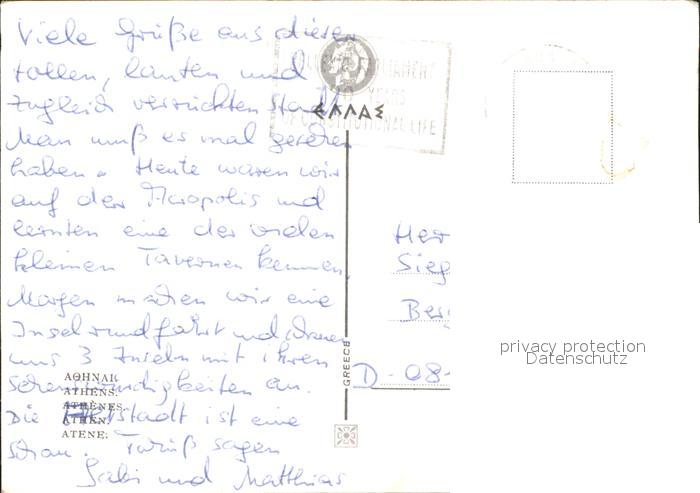 Viele Grüße aus dieser
tollen, lauten und
zugleich verrückten Stadt
Man muß es mal gesehen
haben. Heute waren wir
auf der Akropolis und
lernten eine der vielen
kleinen Tavernen kennen.
Morgen machen wir eine
Inselrundfahrt und schauen
uns 3 Inseln mit ihren
Sehenswürdigkeiten an.
Die Altstadt ist eine
Schau. Tschüß sagen
Gabi und Matthias
ΑΘΗΝΑΙ.
ATHENS.
ATHÈNES.
ATHEN.
ATENE.
PARLIAMENT
YEARS
OF CONSTITUTIONAL LIFE
ΕΛΛΑΣ
GREECE
Her
Sieg
Ber
D-08
privacy protection
Datenschutz